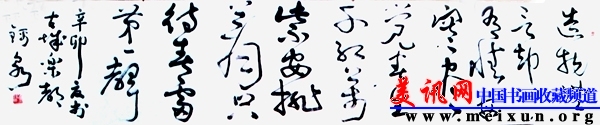 造物无
言却
有情每
于寒尽
觉春生
千红万
紫安排
著只
待春雷
第一声
辛卯夏书
古城乐都
美讯网
中国书画收藏频道
www.meixun.org